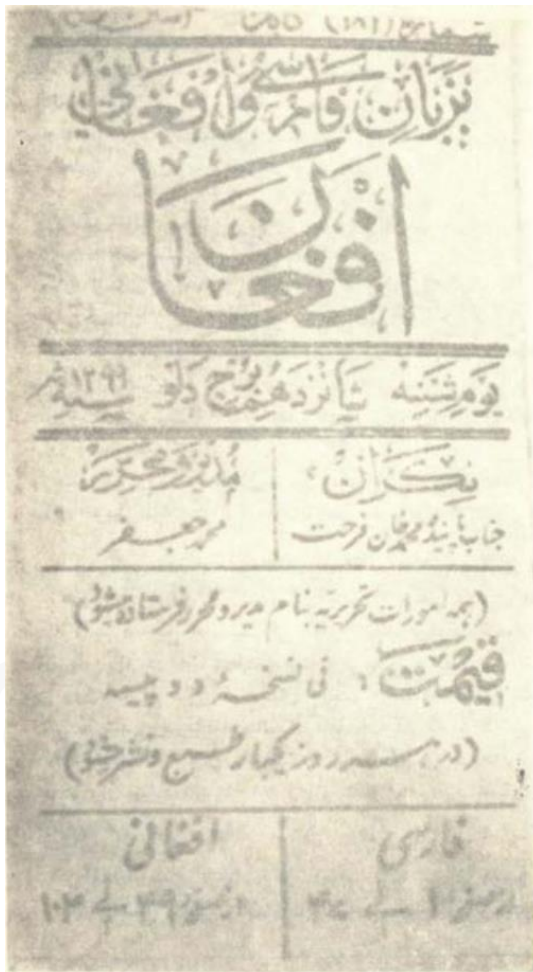 شماره (۱۸۲)
بزبان فارسی و افغانی
افغان
یوم شنبه شانزدهم برج دلو سنه ۱۲۹۹ شمسی
نگران
جناب پاینده محمد خان فرحت
مدیر و محرر
محمد جعفر
(همه امورات تحریریه بنام مدیر و محرر فرستاده میشود)
قیمت: فی نسخهٔ دو پیسه
(در هر سه روز یکبار طبع و نشر میشود)
فارسی
افغانی